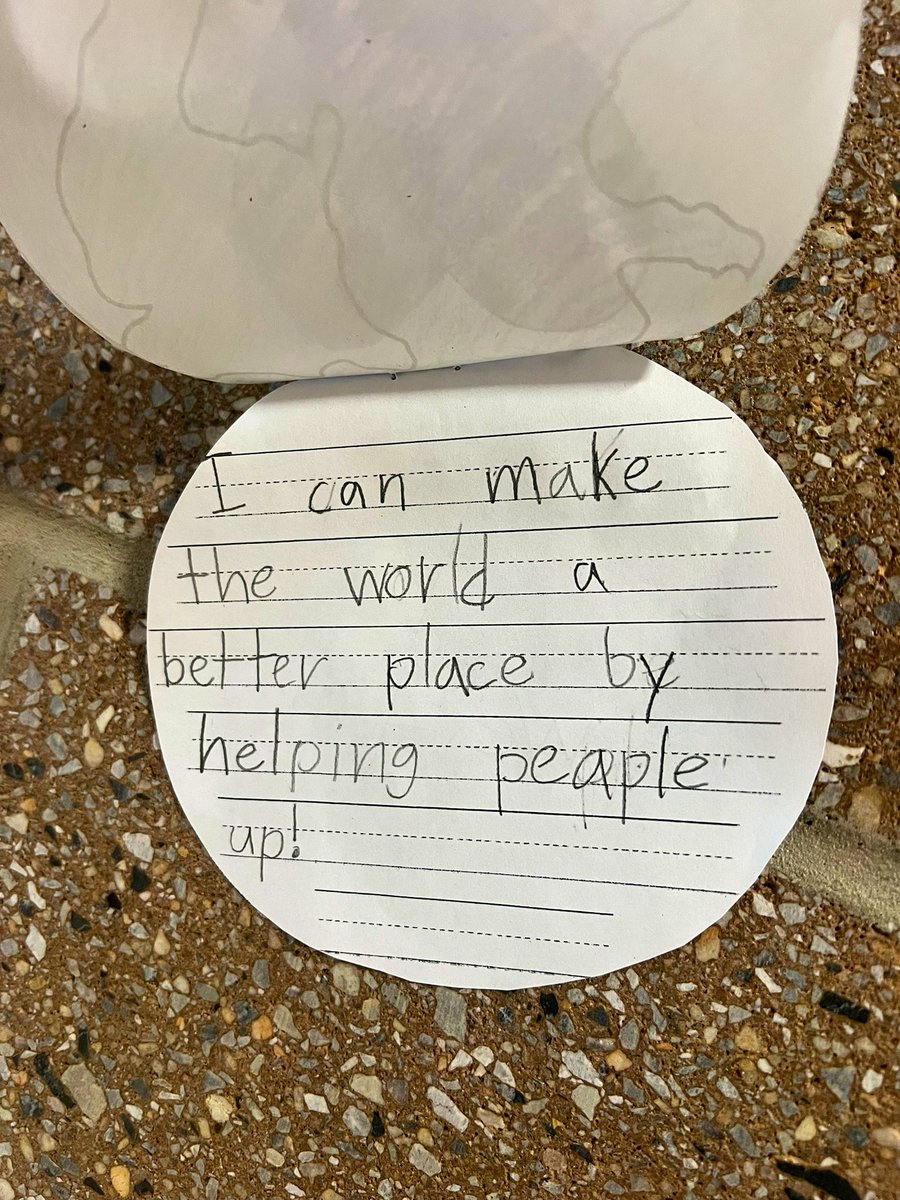 I can make
the world a
better place by
helping peaple
up!